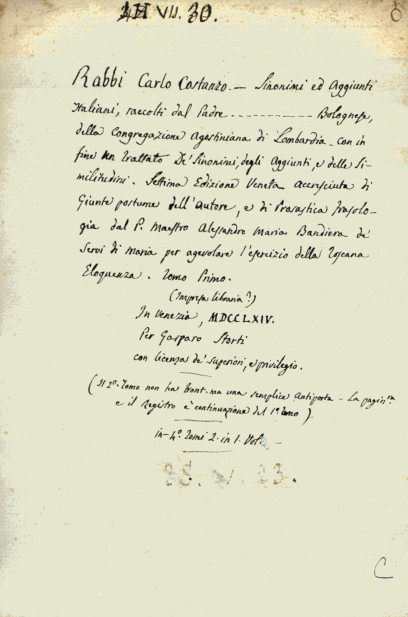 VII. 30.
Rabbi Carlo Costanzo. — Sinonimi ed Aggiunti
Italiani, raccolti dal Padre ------------ Bolognese,
della Congregazione Agostiniana di Lombardia - con in
fine un trattato De' Sinonimi, degli Aggiunti, e delle Si-
militudini. Settima Edizione Veneta accresciuta di
Giunte postume dell'autore, e di Prosastica Frasolo-
gia dal P. Maestro Alessandro Maria Bandiera de'
Servi di Maria per agevolare l'esercizio della Toscana
Eloquenza. Tomo Primo.
(Impresa libraria?)
In Venezia, MDCCLXIV.
Per Gasparo Storti
con licenza de' superiori, e privilegio.
(Il 2º. Tomo non ha front. ma una semplice Antiporta - La pagin.ne
e il Registro è continuazione del 1º. tomo)
in-4º. Tomi 2. in 1. Vol.
C